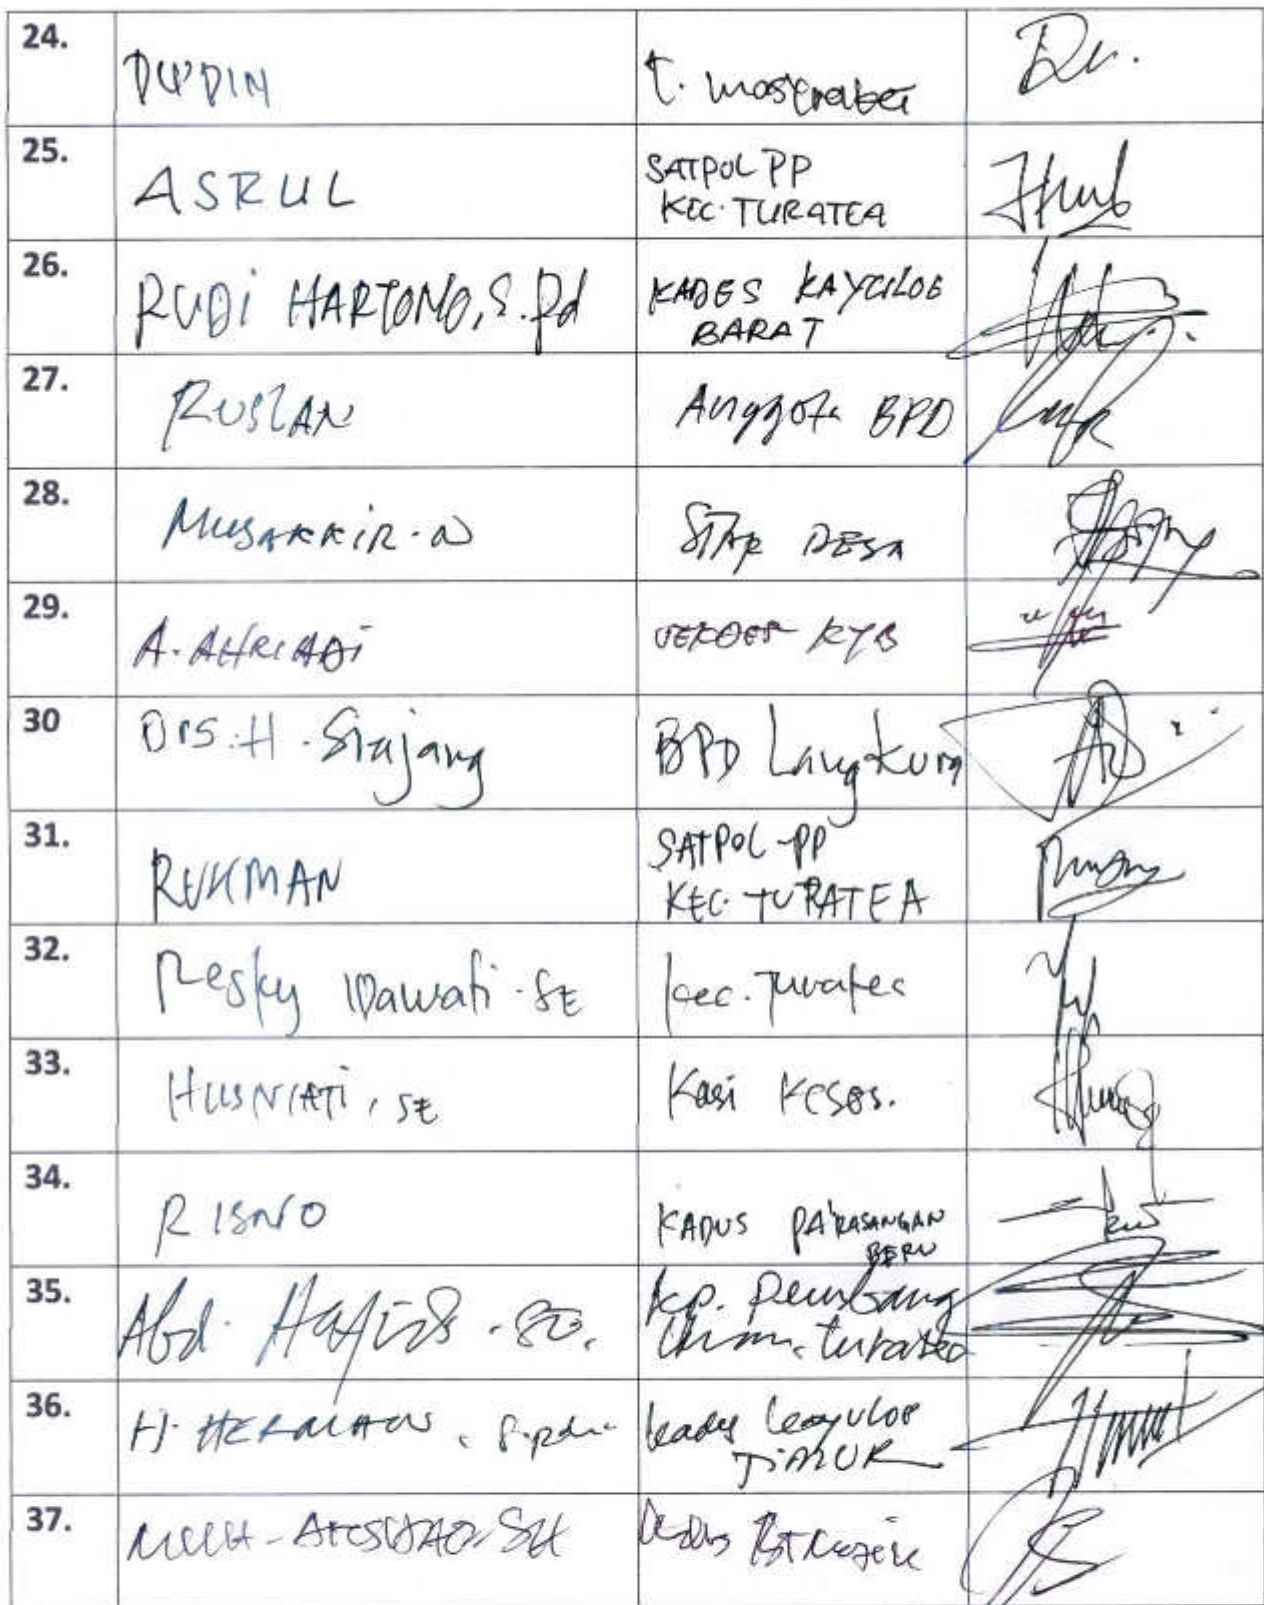 24. DU'DIN T. masyarakat
25. ASRUL SATPOL PP
KEC. TURATEA
26. RUDI HARTONO, S.Pd KADES KAYULOE
BARAT
27. RUSLAN Anggota BPD
28. MUSAKKIR. N STAF DESA
29. A. AHRIADI SEKDES KYB
30 Drs. H. Sirajang BPD Langkura
31. RUKMAN SATPOL-PP
KEC. TURATEA
32. Resky Idawati. SE Kec. Turatea
33. HUSNIATI, SE Kasi KESOS.
34. RISNO KADUS PA'RASANGAN
BERU
35. Abd. Hafids. SE.
Turatea
36. H. HERMAN, S.Pd. Kades Kayuloe
TIMUR
37. MUH- SH